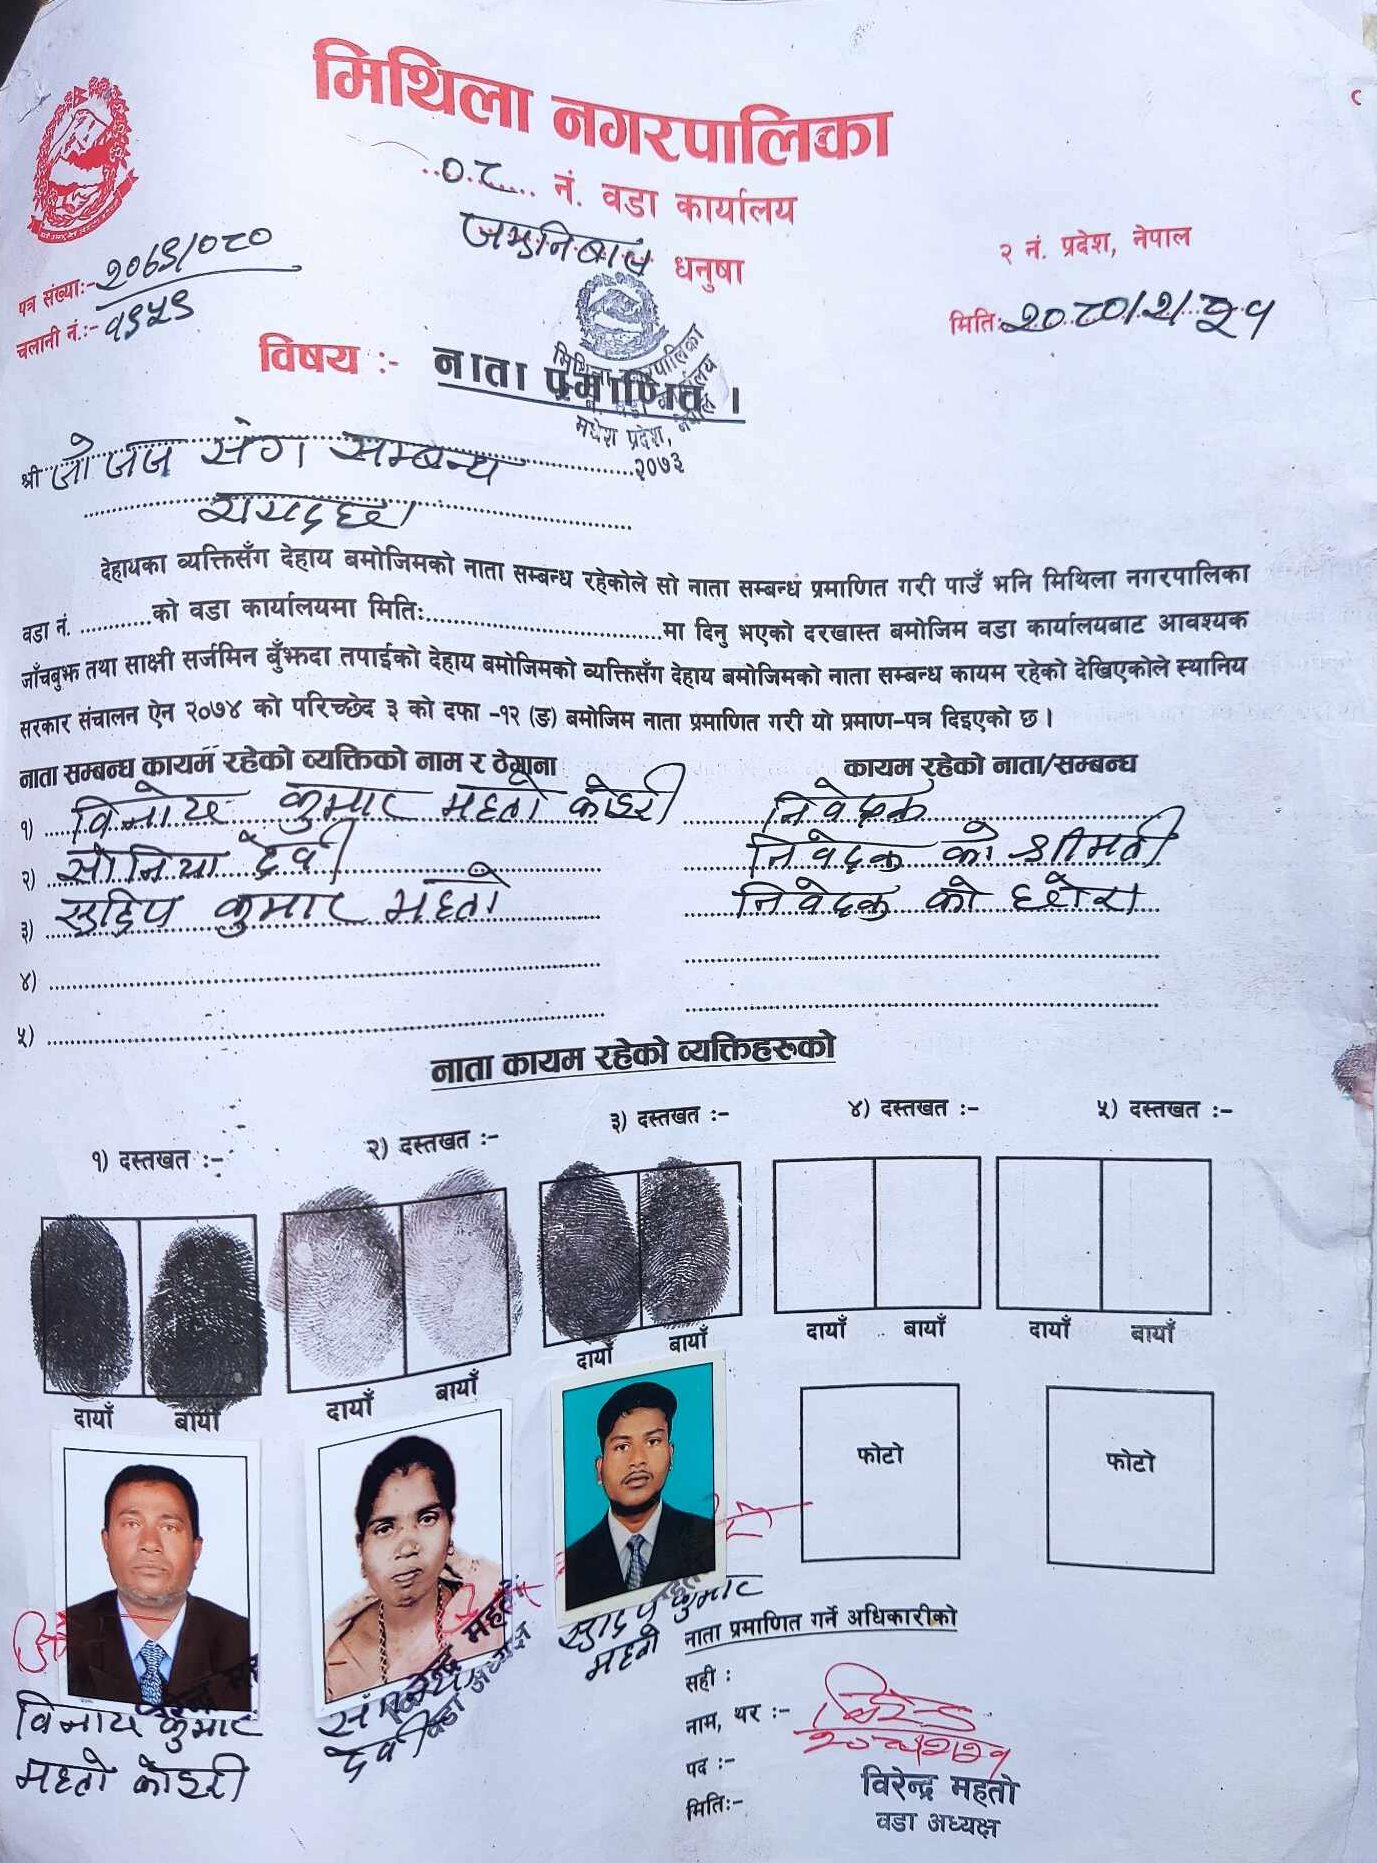 मिथिला नगरपालिका
..०८.... नं. वडा कार्यालय
धनुषा
२ नं. प्रदेश, नेपाल
पत्र संख्याः- २०७९/०८०
चलानी नं.:- १९५९
मितिः २०८०/२/
विषय :- नाता प्रमाणित ।
मिथिला नगरपालिका
मधेश प्रदेश,
२०७३
श्री जो जज संग सम्बन्ध
देहायका व्यक्तिसँग देहाय बमोजिमको नाता सम्बन्ध रहेकोले सो नाता सम्बन्ध प्रमाणित गरी पाउँ भनि मिथिला नगरपालिका
वडा नं. ............को वडा कार्यालयमा मितिः......................................मा दिनु भएको दरखास्त बमोजिम वडा कार्यालयबाट आवश्यक
जाँचबुझ तथा साक्षी सर्जमिन बुँझ्दा तपाईको देहाय बमोजिमको व्यक्तिसँग देहाय बमोजिमको नाता सम्बन्ध कायम रहेको देखिएकोले स्थानिय
सरकार संचालन ऐन २०७४ को परिच्छेद ३ को दफा -१२ (ङ) बमोजिम नाता प्रमाणित गरी यो प्रमाण-पत्र दिइएको छ ।
नाता सम्बन्ध कायम रहेको व्यक्तिको नाम र ठेगाना
कायम रहेको नाता/सम्बन्ध
१) विनोय कुमार महतो कोइरी निवेदक
२) सोनिया देवी निवेदक को श्रीमती
३) सुदिप कुमार महतो निवेदक को छोरा
४)
५)
नाता कायम रहेको व्यक्तिहरुको
१) दस्तखत :- २) दस्तखत :- ३) दस्तखत :- ४) दस्तखत :- ५) दस्तखत :-
दायाँ बायाँ दायाँ बायाँ दायाँ बायाँ दायाँ बायाँ दायाँ बायाँ
फोटो फोटो
कुमार
महतो कोइरी
देवी
वडा अध्यक्ष
कुमार
महतो
नाता प्रमाणित गर्ने अधिकारीको
सही :
नाम, थर :-
पद :-
मितिः-
विरेन्द्र महतो
वडा अध्यक्ष